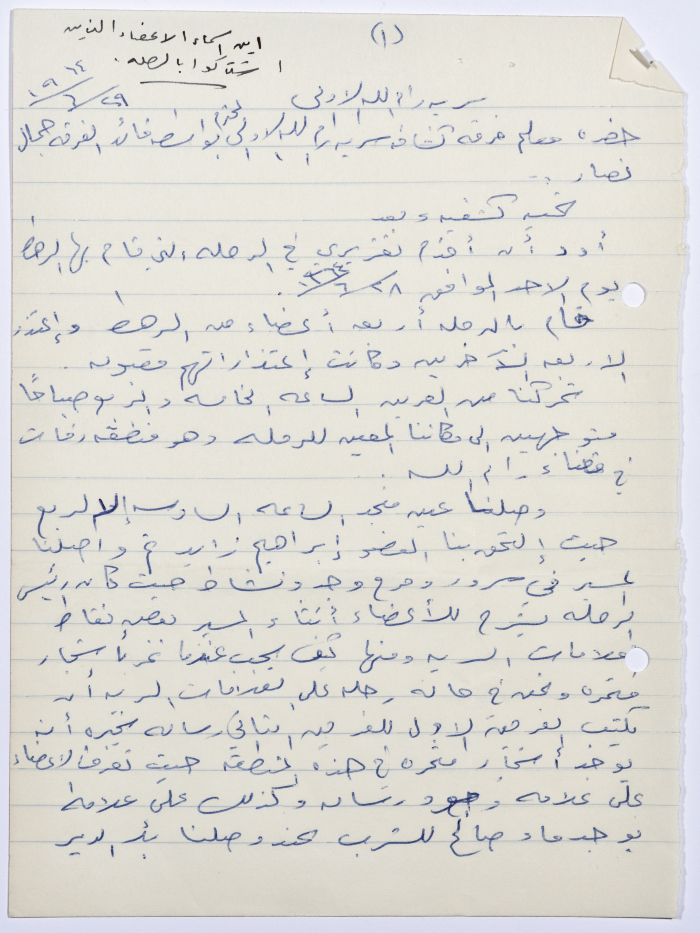 (١)
اين اسماء الاعضاء الذين
اشتركوا بالرحله .
سريه رام الله الاولى
٢٩/٦/١٩٦٤
حضره معلم فرقه كشافه سريه رام الله الاولى المحترم بواسطه قائد الفرقه جمال
نصار ..
تحيه كشفيه وبعد
أود أن أقدم تقريري في الرحله التي قام بها الرهط
يوم الاحد الموافق ٢٨/٦/١٩٦٤ .
قام بالرحله أربعه أعضاء من الرهط وإعتذر
الاربعه الآخرين وكانت إعتذاراتهم مقبوله .
تحركنا من العرين الساعه الخامسه والربع صباحًا
متوجهين الى مكاننا المعين للرحله وهو منطقه
في قضاء رام الله .
وصلنا عين منجد الساعه السادسه إلا الربع
حيث إلتحق بنا العضو إبراهيم زايد ثم واصلنا
المسير في سرور ومرح وجد ونشاط حيث كان رئيس
الرحله يشرح للأعضاء أثناء المسير بعض نقاط
علامات السريه ومنها كيف يجب عندما نمر بأشجار
مثمره ونحن في حاله رحله على العلامات السريه أن
يكتب الفريق الاول للفريق الثاني رساله تخبره أنه
يوجد أشجار مثمره في هذه المنطقه حيث تعرف الاعضاء
على علامه وجود رساله وكذلك على علامه
يوجد ماء صالح للشرب عند وصلنا بئر الدير